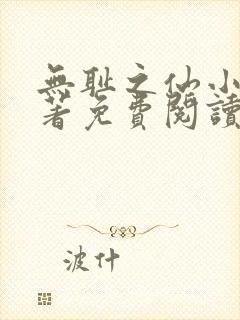 無耻之仙小
著免費閱讀
波什